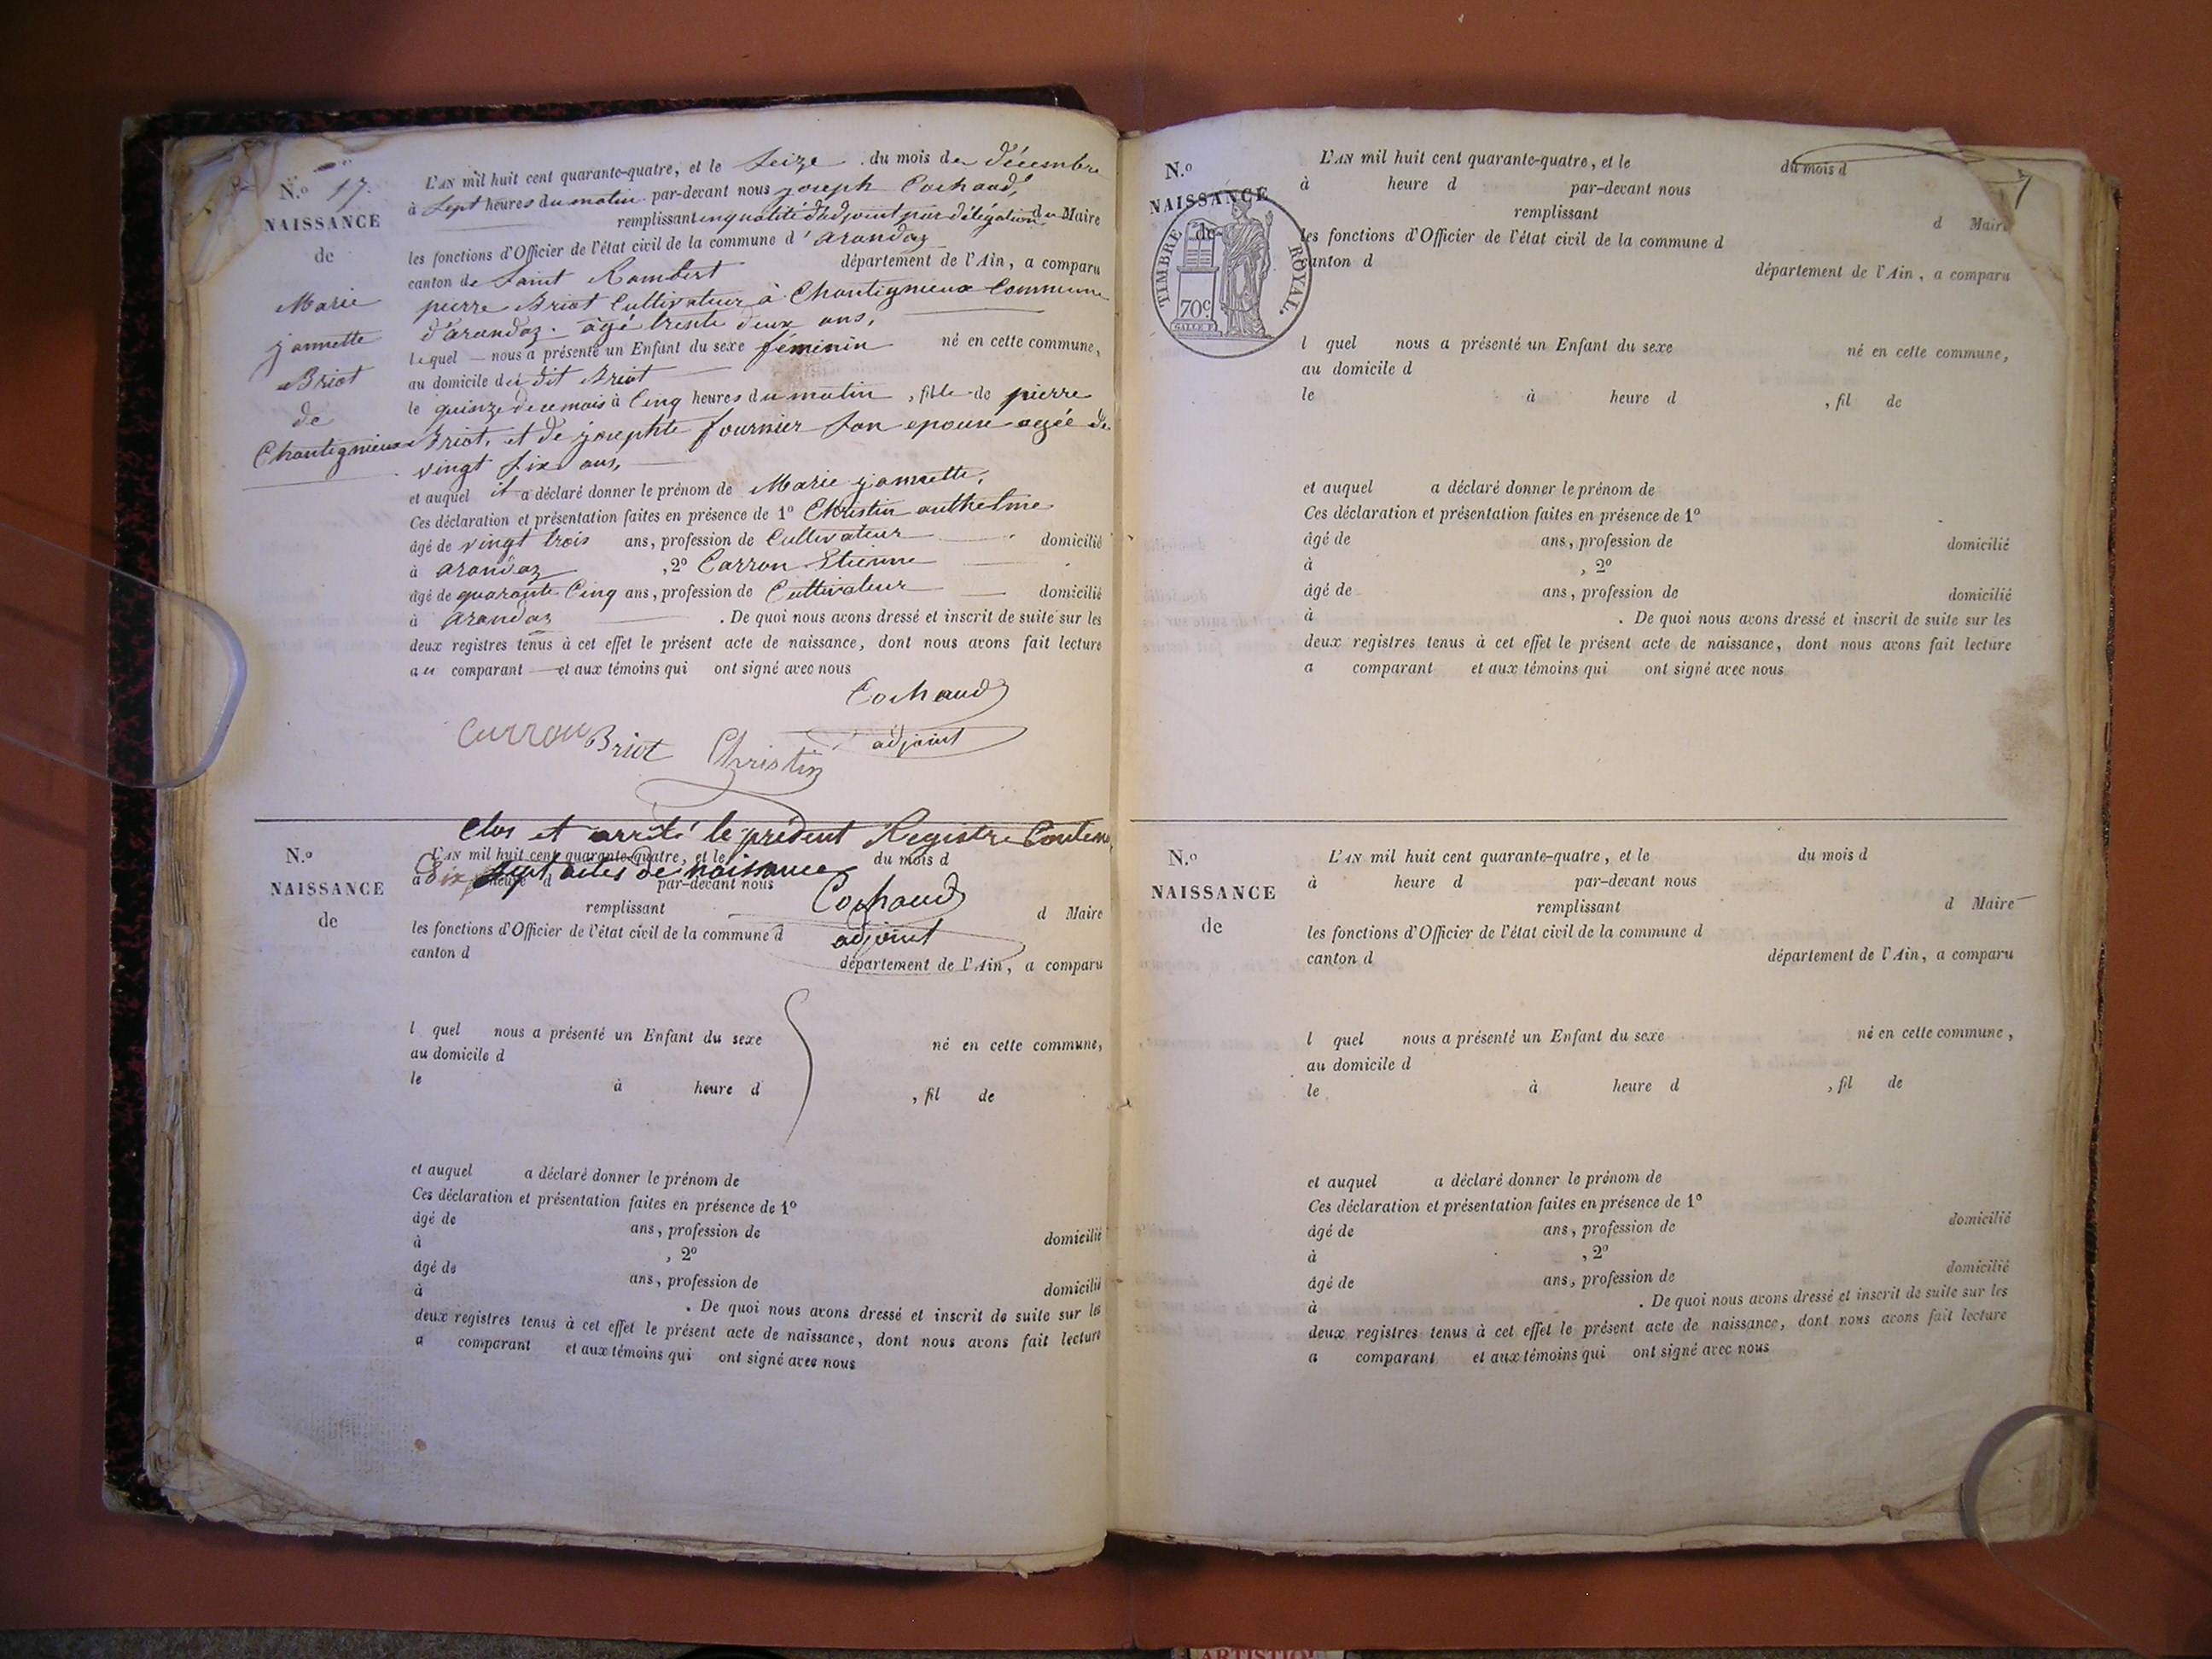 N.º 17.
NAISSANCE
de
Marie
jannette
Briot
de
Chantignieux
L'AN mil huit cent quarante-quatre, et le Seize du mois de décembre
à Sept heures du matin par-devant nous joseph Cochaud,
remplissant en qualité d'adjoint par délégation du Maire
les fonctions d'Officier de l'état civil de la commune d'arandaz
canton de Saint Rambert département de l'Ain, a comparu
pierre Briot Cultivateur à Chantignieux Commune
d'arandaz. âgé trente deux ans,
lequel nous a présenté un Enfant du sexe féminin né en cette commune,
au domicile du dit Briot
le quinze de ce mois à Cinq heures du matin, fille de pierre
Briot, et de josephte fournier Son epouse agée de
vingt Six ans,
et auquel il a déclaré donner le prénom de Marie jannette,
Ces déclaration et présentation faites en présence de 1º Christin anthelme
âgé de vingt trois ans, profession de Cultivateur domicilié
à arandaz , 2º Carron Etienne
âgé de quarante Cinq ans, profession de Cultivateur domicilié
à arandaz . De quoi nous avons dressé et inscrit de suite sur les
deux registres tenus à cet effet le présent acte de naissance, dont nous avons fait lecture
au comparant et aux témoins qui ont signé avec nous
Cochaud
adjoint
Carron Briot Christin
Clos et arrêté le présent Registre Contenant
Dix sept actes de naissance
Cochaud
adjoint
N.º
NAISSANCE
de
L'AN mil huit cent quarante-quatre, et le du mois d
à heure d par-devant nous
remplissant d Maire
les fonctions d'Officier de l'état civil de la commune d
canton d département de l'Ain, a comparu
l quel nous a présenté un Enfant du sexe né en cette commune,
au domicile d
le à heure d , fil de
et auquel a déclaré donner le prénom de
Ces déclaration et présentation faites en présence de 1º
âgé de ans, profession de domicilié
à , 2º
âgé de ans, profession de domicilié
à . De quoi nous avons dressé et inscrit de suite sur les
deux registres tenus à cet effet le présent acte de naissance, dont nous avons fait lecture
a comparant et aux témoins qui ont signé avec nous
N.º
NAISSANCE
de
TIMBRE ROYAL.
70c.
L'AN mil huit cent quarante-quatre, et le du mois d
à heure d par-devant nous
remplissant d Maire
les fonctions d'Officier de l'état civil de la commune d
canton d département de l'Ain, a comparu
l quel nous a présenté un Enfant du sexe né en cette commune,
au domicile d
le à heure d , fil de
et auquel a déclaré donner le prénom de
Ces déclaration et présentation faites en présence de 1º
âgé de ans, profession de domicilié
à , 2º
âgé de ans, profession de domicilié
à . De quoi nous avons dressé et inscrit de suite sur les
deux registres tenus à cet effet le présent acte de naissance, dont nous avons fait lecture
a comparant et aux témoins qui ont signé avec nous
N.º
NAISSANCE
de
L'AN mil huit cent quarante-quatre, et le du mois d
à heure d par-devant nous
remplissant d Maire
les fonctions d'Officier de l'état civil de la commune d
canton d département de l'Ain, a comparu
l quel nous a présenté un Enfant du sexe né en cette commune,
au domicile d
le à heure d , fil de
et auquel a déclaré donner le prénom de
Ces déclaration et présentation faites en présence de 1º
âgé de ans, profession de domicilié
à , 2º
âgé de ans, profession de domicilié
à . De quoi nous avons dressé et inscrit de suite sur les
deux registres tenus à cet effet le présent acte de naissance, dont nous avons fait lecture
a comparant et aux témoins qui ont signé avec nous